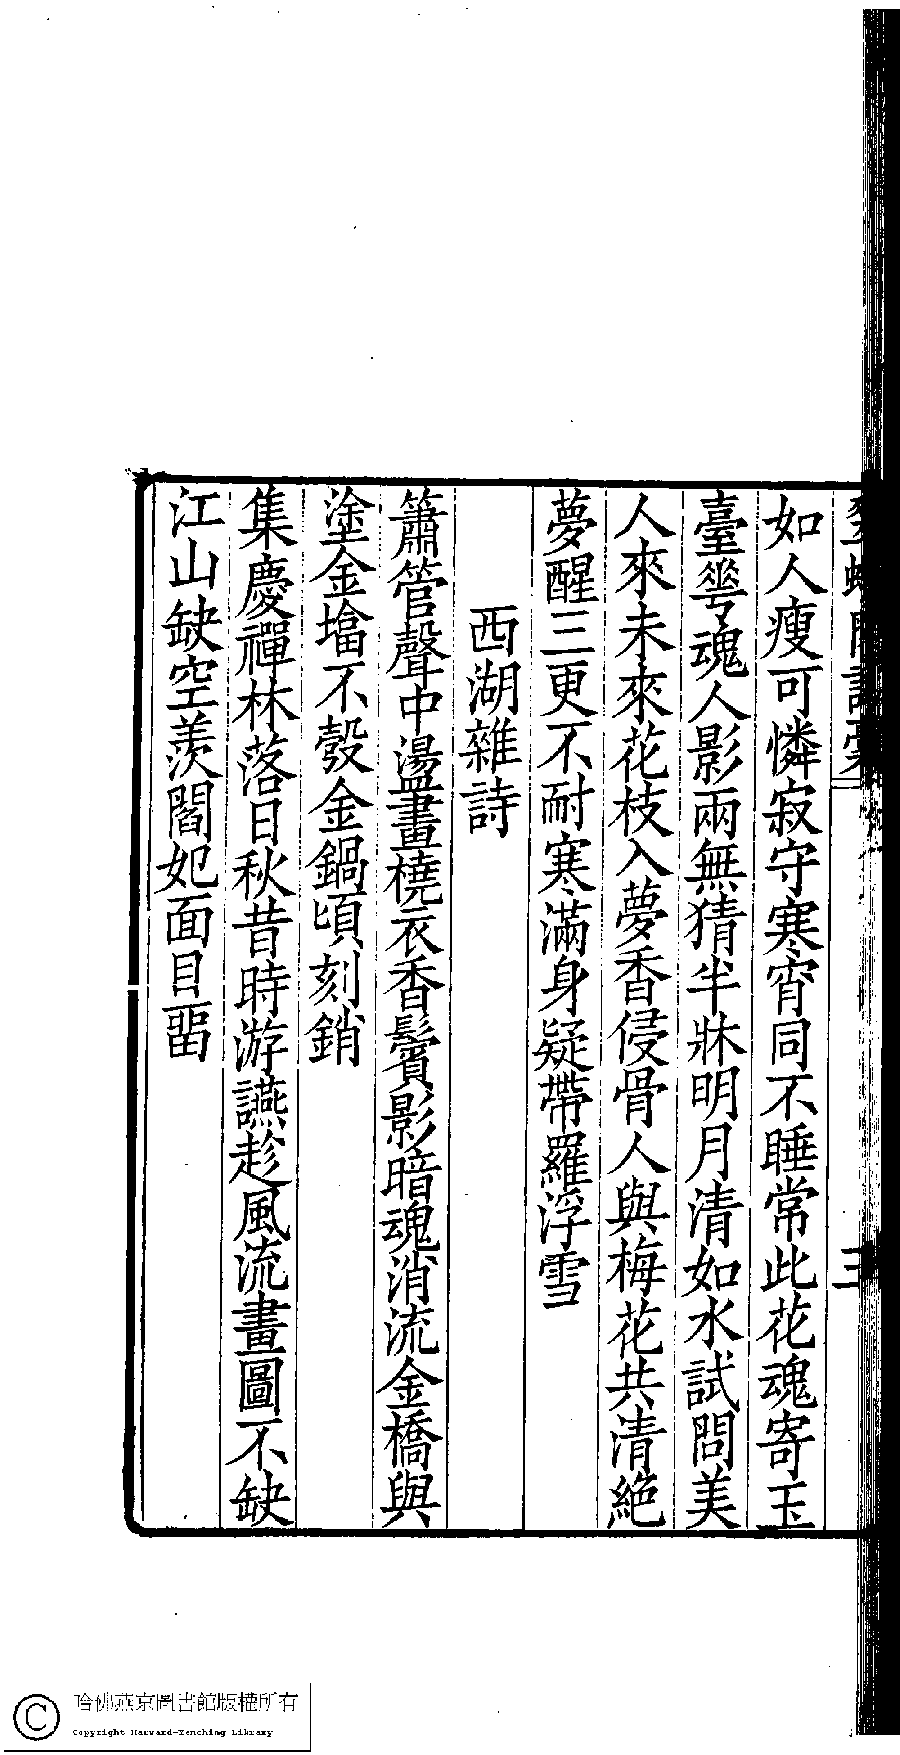 如人瘦可憐寂守寒宵同不睡常此花魂寄玉
臺蕚魂人影兩無猜半牀明月清如水試問美
人來未來花枝入夢香侵骨人與梅花共清絶
夢醒三更不耐寒滿身疑帶羅浮雪
西湖雜詩
簫管聲中盪畫橈衣香鬢影暗魂消流金橋與
塗金墖不彀金鍋頃刻銷
集慶禪林落日秋昔時游讌趁風流畫圖不缺
江山缺空羨閻妃面目畱
三
哈佛燕京圖書館版權所有
Copyright Harvard-Yenching Library